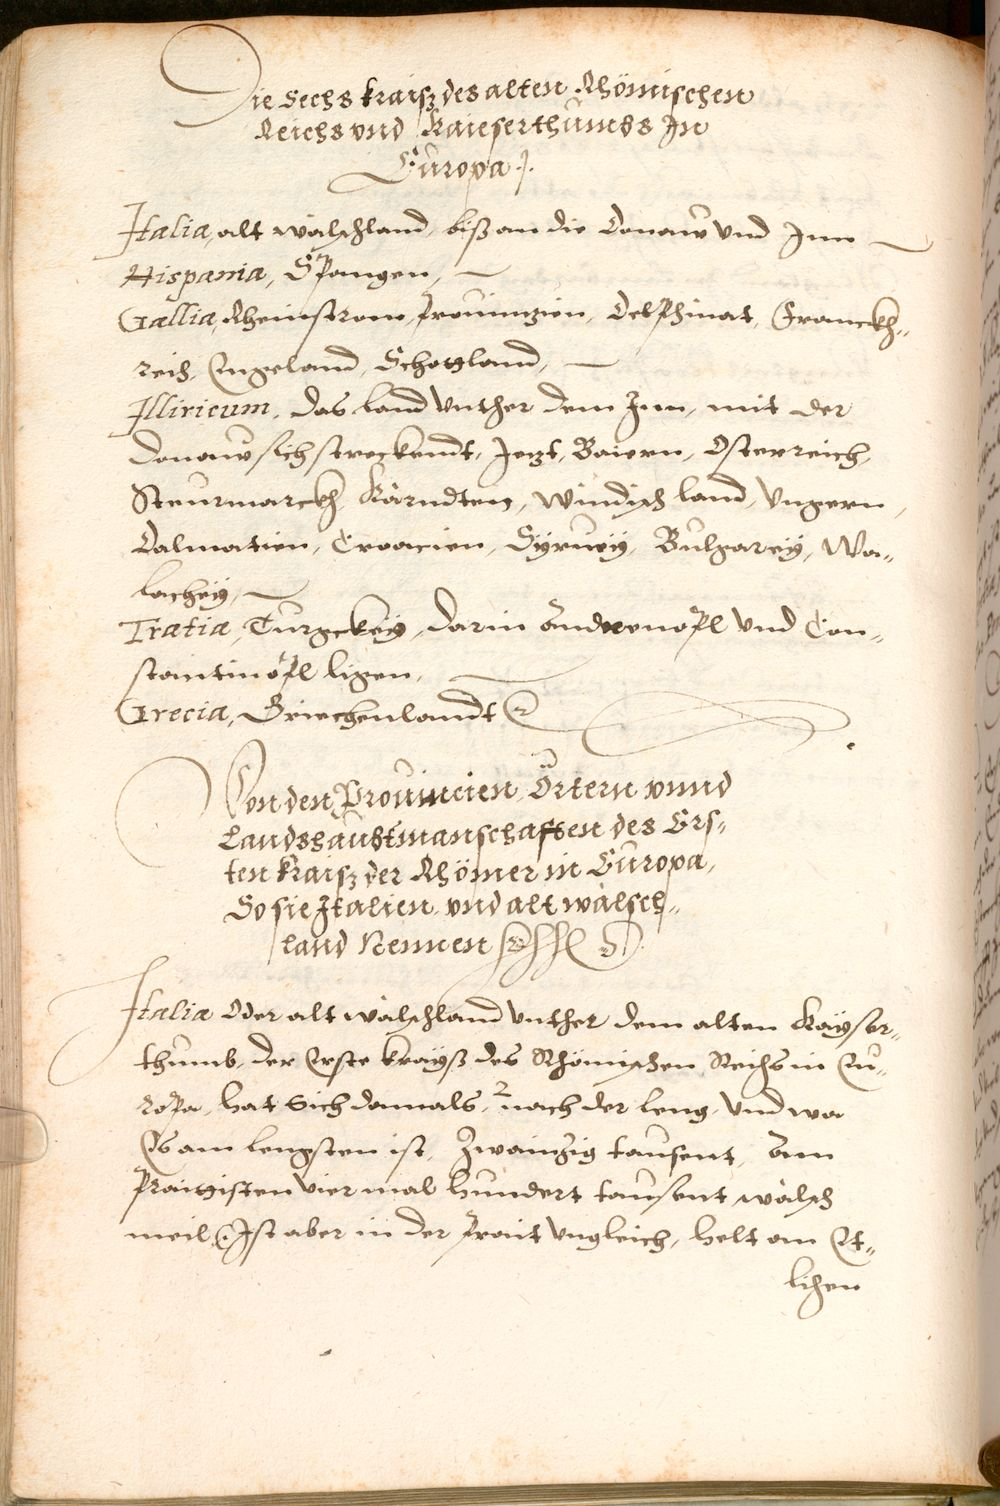 Die Sechs kraisz des alten Rhömischen
Reichs vnd Kaieserthumbs In
Europa /.
Italia, alt wälschland, biß an die Donaw vnd Inn
Hispania, Spangen,
Gallia, Rheinstrom, Prouintzien, Delphinat, Franckh-
reich, Engeland, Schotland,
Illiricum, das land vnther dem Inn, mit der
donaw sich streckendt, Jetzt, Baiern, Osterreich,
Steurmarckh, Kärndten, Windisch land, Vngern,
Dalmatien, Croacien, Syruey, Bulgarey, Wa-
lachey,
Tratia, Turgckey, darin Andrenopl vnd Con-
stantinopl ligen,
Grecia, Griechenlandt
Von den Prouincien, Örtern vnnd
Landshaubtmanschafften des Ers-
ten kraisz der Rhömer in Europa,
So sie Italien, vnd alt wälsch-
land Nennen
Italia Oder alt wälschland vnther dem alten Kayser-
thumb, der Erste krayß des Rhömischen Reichs in Eu-
ropa, hat Sich damals, nach der leng, vnd wa
Es am lengsten ist, Zwaintzig tausent, Am
Praitisten vier mal hundert tausent wälsch
meil, Ist aber in der Prait vngleich, helt am Et-
lichen